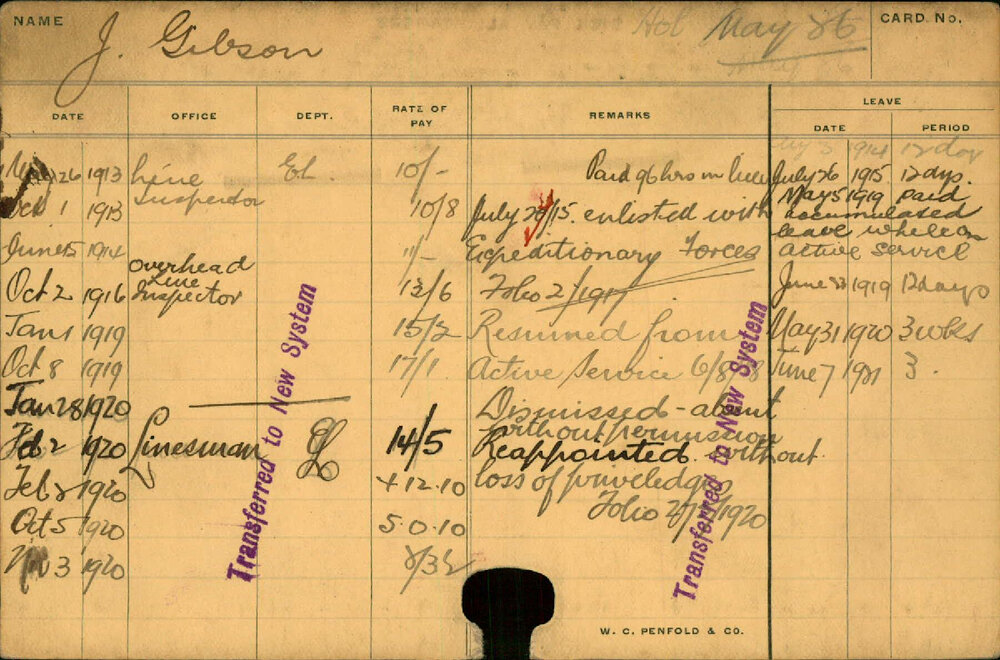 NAME J. Gibson Hol May 26 CARD. No.
DATE OFFICE DEPT. RATE OF PAY REMARKS LEAVE
DATE PERIOD
1914 12 day
26 1913 Line Inspector El 10/- Paid 96 hrs in lieu July 26 1915 12 dys.
Oct 1 1913 10/8 July 26/15. enlisted with May 5 1919 paid
accumulated
leave while on
June 15 1914 11/- Expeditionary Forces active service
Oct 2 1916 Overhead Line Inspector 13/6 Folio 2/1917 June 23 1919 12 days
Jan 1 1919 15/2 Resumed from May 31 1920 3 wks
Oct 8 1919 17/1. Active Service 6/8/18 June 7 1921 3.
Jan 28 1920 Dismissed - absent
without permission
Feb 2 1920 Linesman EL 14/5 Reappointed without
Feb 2 1920 4.12.10 loss of priveledges
Oct 5 1920 5.0.10 Folio 1920
3 1920
Transferred to New System
Transferred to New System
W. C. PENFOLD & CO.